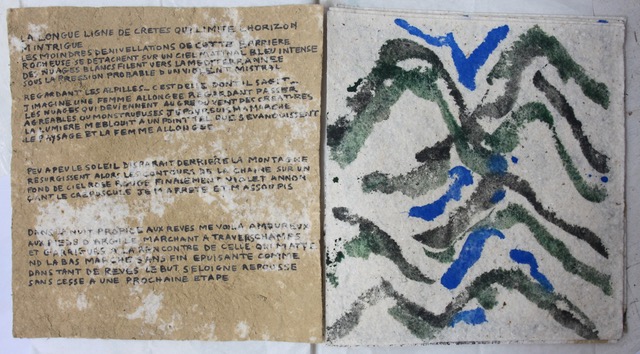 LA LONGUE LIGNE DE CRETES QUI LIMITE L HORIZON
M INTRIGUE
LES MOINDRES DENIVELLATIONS DE CETTE BARRIERE
ROCHEUSE SE DETACHENT SUR UN CIEL MATINAL BLEU INTENSE
DES NUAGES BLANCS FILENT VERS LA MEDITERRANNEE
SOUS LA PRESSION PROBABLE D UN VIOLENT MISTRAL
REGARDANT LES ALPILLES C EST D ELLE DONT IL S AGIT
J IMAGINE UNE FEMME ALLONGEE REGARDANT PASSER
LES NUAGES QUI DEVIENNENT AU GRE DU VENT DES CREATURES
AGREABLES OU MONSTRUEUSES MA MARCHE
LA LUMIERE M EBLOUIT A UN POINT TEL QUE S EVANOUISSENT
LE PAYSAGE ET LA FEMME ALLONGEE
PEU A PEU LE SOLEIL DISPARAIT DERRIERE LA MONTAGNE
RESURGISSENT ALORS LES CONTOURS DE LA CHAINE SUR UN
FOND DE CIEL ROSE ROUGE FINALEMENT VIOLET ANNON
ÇANT LE CREPUSCULE JE M ARRETE ET M ASSOUPIS
DANS LA NUIT PROPICE AUX REVES ME VOILA AMOUREUX
AUX PIEDS D ARGILE MARCHANT A TRAVERS CHAMPS
ET GARRIGUES A LA RENCONTRE DE CELLE QUI M ATTE
ND LA BAS MARCHE SANS FIN EPUISANTE COMME
DANS TANT DE REVES LE BUT S ELOIGNE REPOUSSE
SANS CESSE A UNE PROCHAINE ETAPE